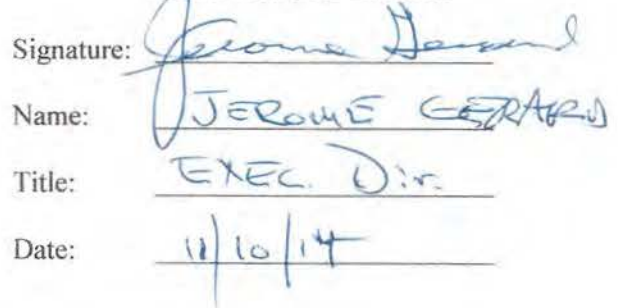 Signature: Jerome Gerard
Name: JEROME GERARD
Title: EXEC. Dir.
Date: 11/10/14